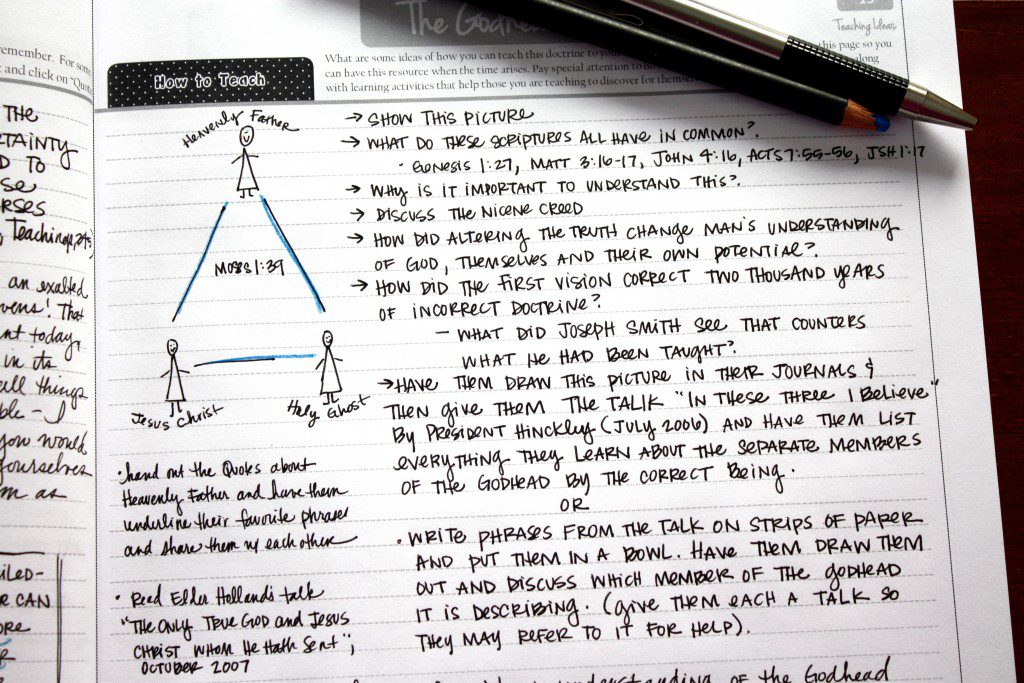 The Godhead
Teaching Ideas
What are some ideas of how you can teach this doctrine to
this page so you
can have this resource when the time arises. Pay special attention to
along
with learning activities that help those you are teaching to discover for
How to Teach
remember. For
and click on "Quo
THE
TAINTY
D TO
SE
RSES
Teachings,
an exalted
vens! That
nt today,
in its
all things
ble - I
you would
yourselves
m as
ILED-
R CAN
ORE
Heavenly Father
Moses 1:39
Jesus Christ
Holy Ghost
→ SHOW THIS PICTURE
→ WHAT DO THESE SCRIPTURES ALL HAVE IN COMMON?
• GENESIS 1:27, MATT 3:16-17, JOHN 4:16, ACTS 7:55-56, JSH 1:17
→ WHY IS IT IMPORTANT TO UNDERSTAND THIS?
→ DISCUSS THE NICENE CREED
→ HOW DID ALTERING THE TRUTH CHANGE MAN'S UNDERSTANDING
OF GOD, THEMSELVES AND THEIR OWN POTENTIAL?
→ HOW DID THE FIRST VISION CORRECT TWO THOUSAND YEARS
OF INCORRECT DOCTRINE?
- WHAT DID JOSEPH SMITH SEE THAT COUNTERS
WHAT HE HAD BEEN TAUGHT?
→ HAVE THEM DRAW THIS PICTURE IN THEIR JOURNALS &
THEN GIVE THEM THE TALK "IN THESE THREE I BELIEVE"
BY PRESIDENT HINCKLEY (JULY 2006) AND HAVE THEM LIST
EVERYTHING THEY LEARN ABOUT THE SEPARATE MEMBERS
OF THE GODHEAD BY THE CORRECT BEING.
OR
• WRITE PHRASES FROM THE TALK ON STRIPS OF PAPER
AND PUT THEM IN A BOWL. HAVE THEM DRAW THEM
OUT AND DISCUSS WHICH MEMBER OF THE GODHEAD
IT IS DESCRIBING. (GIVE THEM EACH A TALK SO
THEY MAY REFER TO IT FOR HELP).
• hand out the Quotes about
Heavenly Father and have them
underline their favorite phrases
and share them w/ each other
• Read Elder Holland's talk
"THE ONLY TRUE GOD AND JESUS
CHRIST WHOM HE HATH SENT",
OCTOBER 2007
understanding of the Godhead